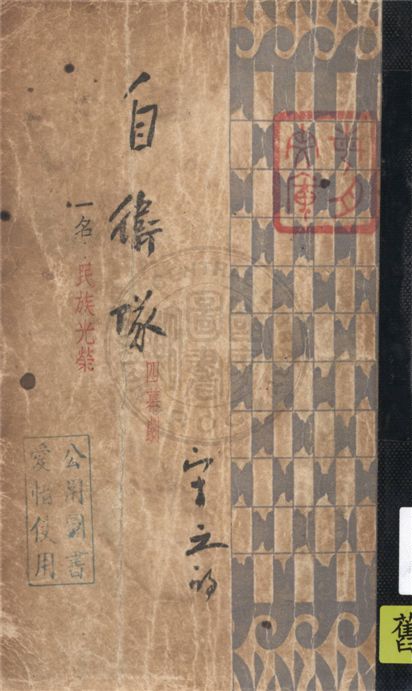 自衛隊
四幕劇
一名 民族光榮
宋之的
公用圖書
愛惜使用
舊